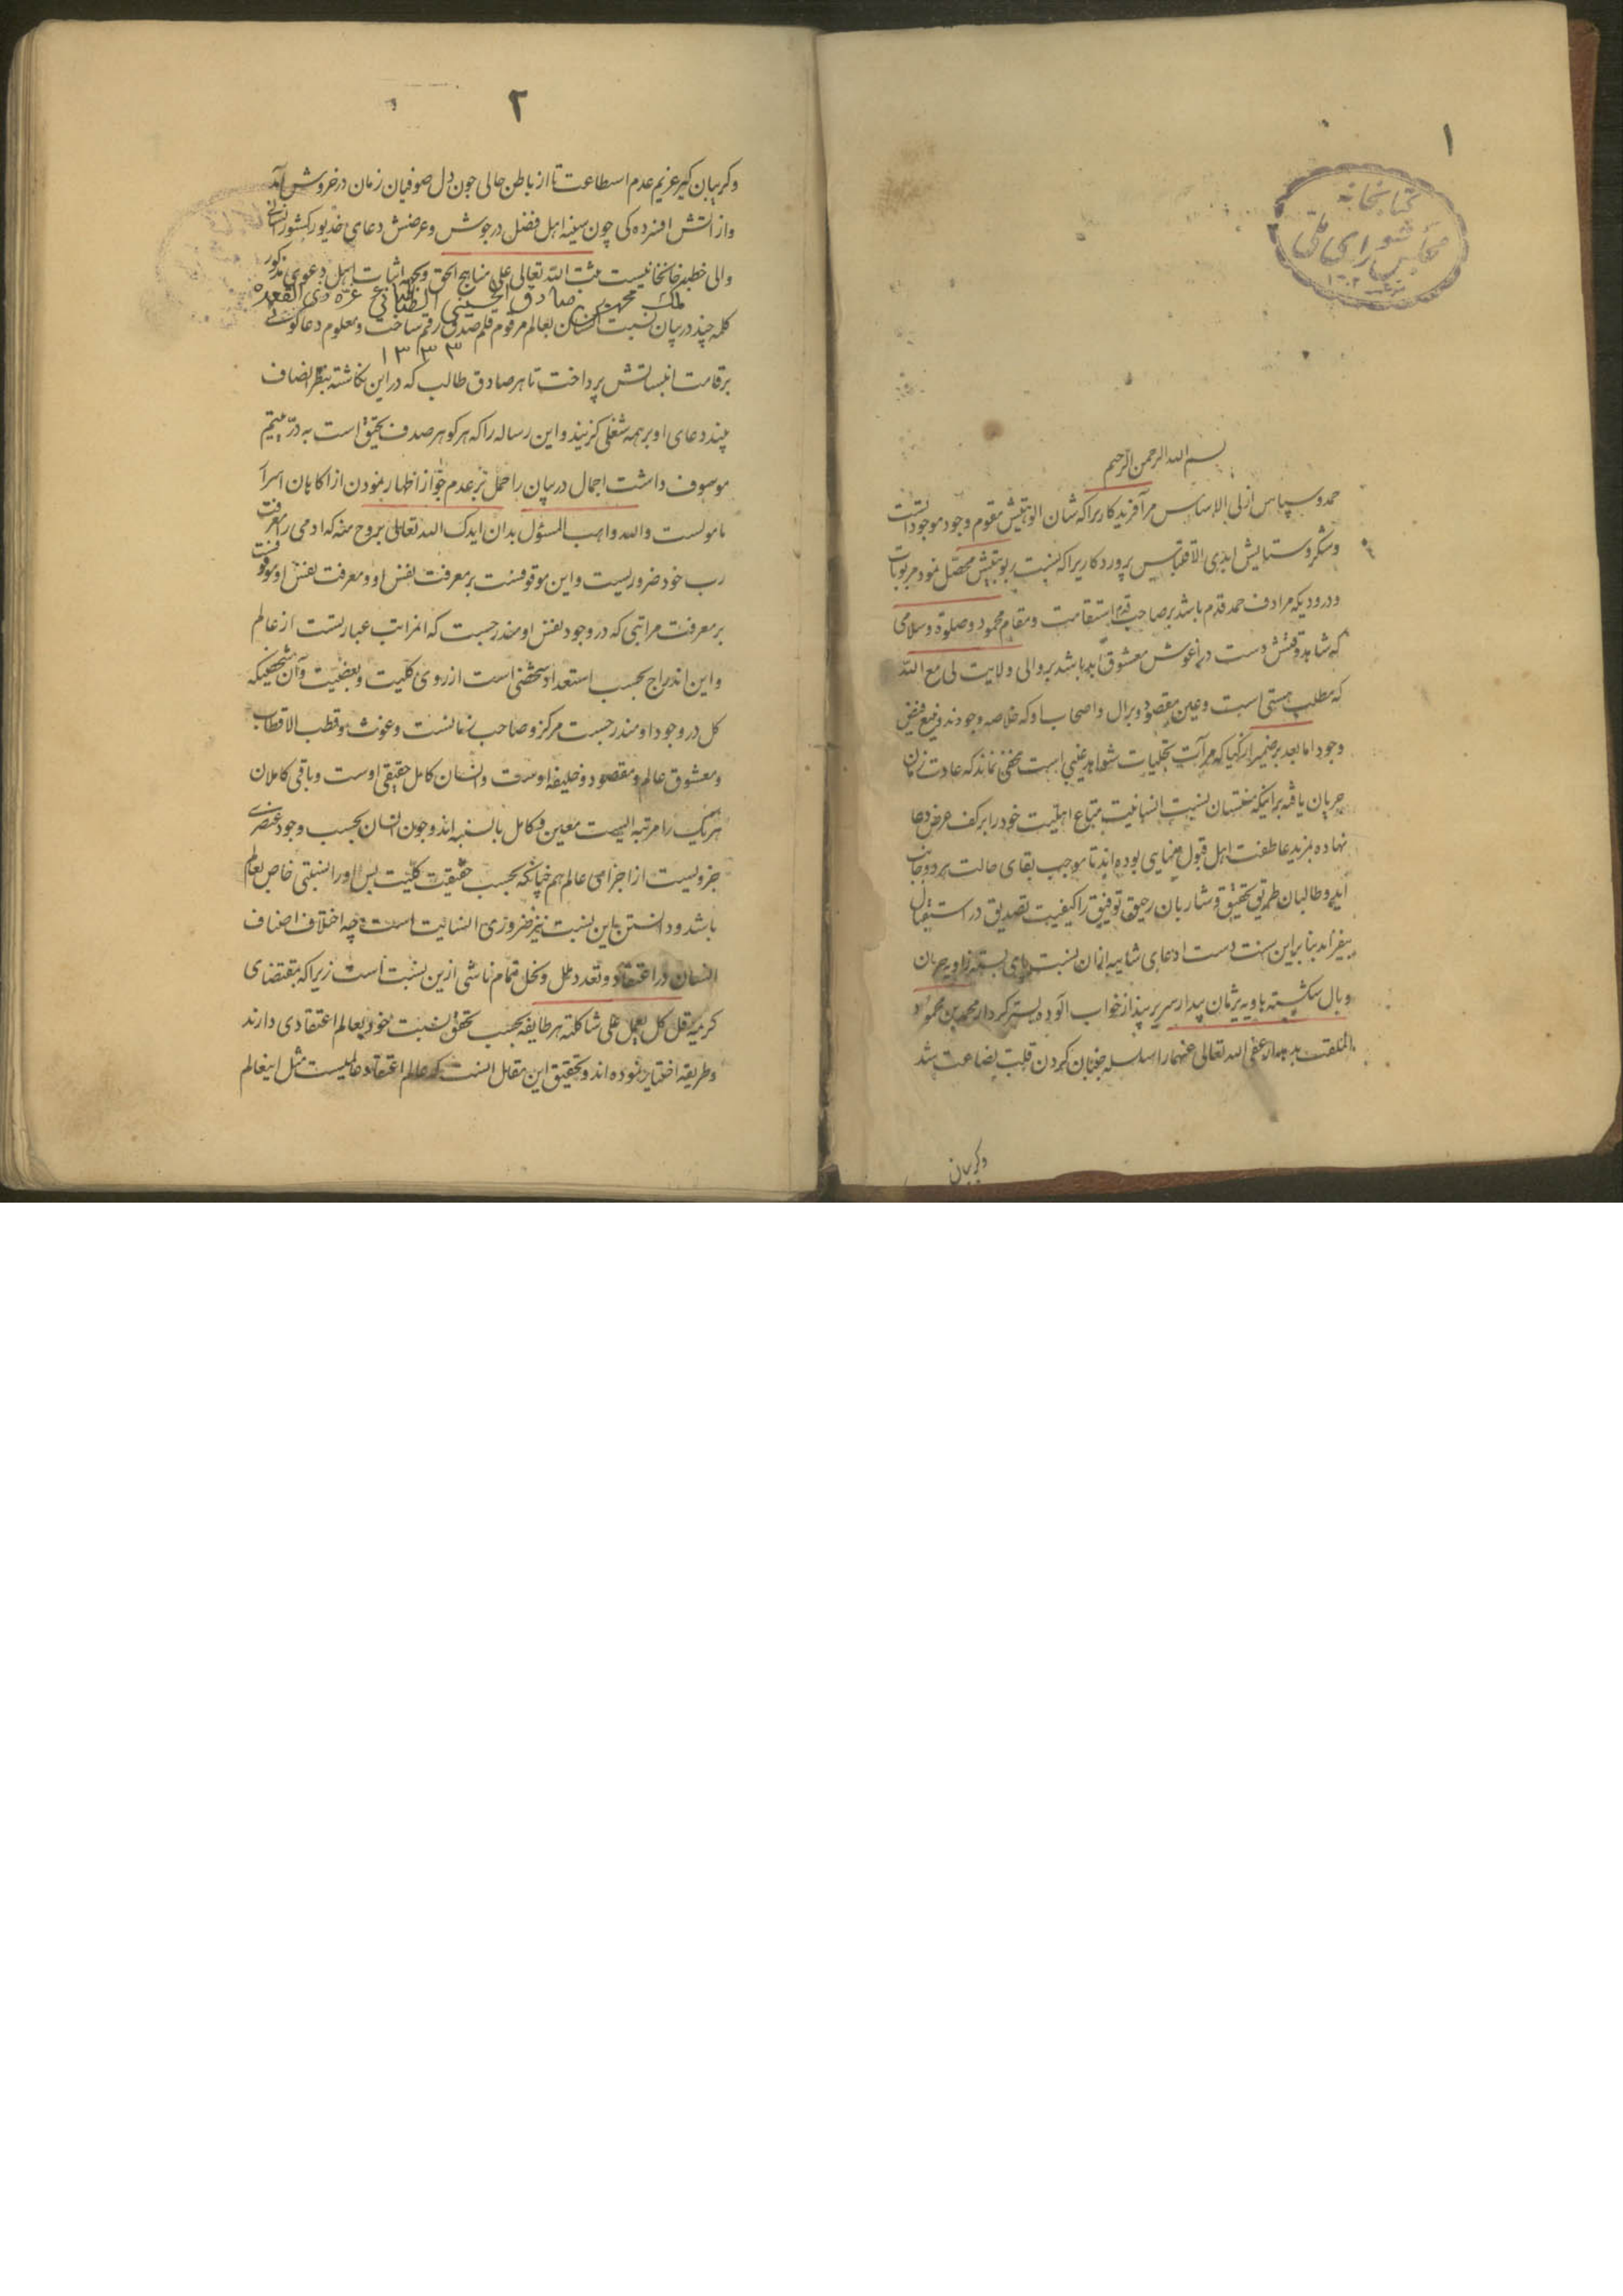 ۱
کتابخانه
مجلس شورای ملی
بسم الله الرحمن الرحیم
حمد و سپاس ازلی الاساس مر آفریدکاریرا که شان الوهیتش مقوم وجود موجوداتست
و شکر و ستایش ابدی الاقتباس پروردکاریرا که نسبت ربوبیتش محصل نمود مربوبات
و درودیکه مرادف حمد قدم باشد بر صاحب قدم استقامت و مقام محمود و صلوة و سلامی
که شاهد وقتش دست در آغوش معشوق ابد باشد بر والی ولایت لی مع الله
که مطلب هستی است و عین مقصود و بر ال و اصحاب او که خلاصه وجودند و منبع فیض
وجود اما بعد بر ضمیر ازکیا که مرآت تجلیات شواهد غیبی است مخفی نماند که عادت زمان
جریان یافته بر اینکه منتسبان نسبت انسانیت متاع اهلیت خود را بر کف عرض دعا
نهاده بمزید عاطفت اهل قبول بوده اند تا موجب بقای حالت هر دو جانب
آید و طالبان طریق تحقیق و شاربان رحیق توفیق را کیفیت تصدیق در استقبال
بیفزاید بنابراین سنت دست ادعای نسبت پای بسته زاویه حرمان
و بال شکسته هاویه بیدار سریر پند از خواب آلوده بستر کردار محمد بن محمود
الملقب بدهدار عفی الله تعالی عنهما را سلسله جنبان کردن قلت بضاعت شد
و کریبان
۲
و کریبان کیر عزیم عدم استطاعت تا از باطن حالی چون دل صوفیان زمان در خروش آمد
و از آتش افسرده کی چون سینه اهل فضل در جوش و عرضش دعای خدیو کشور انسانی
والی خطه ثبت الله تعالی علی مناهج الحق و بجهة اثبات اهل دعوی مذکور
ملک محمد بن صادق الحسینی الطباطبائی غره ذی القعده
کلمه چند در بیان نسبت انسان بعالم مرقوم قلم صدق رقم ساخت و معلوم دعا کوئی
۱۳۳۳
بر قامت پرداخت تا هر صادق طالب که در این نکاشته بنظر انصاف
بیند دعای او بر همه شغلی کزیند و این رساله را که هر کوهر صدف تحقیق است به در یتیم
موصوف داشت اجمال در بیان را حمل بر عدم جواز اظهار نمودن از اکاهان اسرار
مامولست والله واهب المسؤل بدان ایدک الله تعالی بروح منه که ادمی را معرفت
رب خود ضروریست و این موقوفست بر معرفت نفس او و معرفت نفس او موقوفست
بر معرفت مراتبی که در وجود نفس او مندرجست که انمراتب عبارتست از عالم
و این اندراج بحسب استعداد شخصی است از روی کلیت و بعضیت و آن شخصیکه
کل در وجود او مندرجست مرکز و صاحب زمانست و غوث و قطب الاقطاب
و معشوق عالم و مقصود و خلیفه اوست و انسان کامل حقیقی اوست و باقی کاملان
هر یک را مرتبه ایست معین و کامل بالنسبه اند و چون انسان بحسب وجود عنصری
جزویست از اجزای عالم هم چنانکه بحسب حقیقت کلیت پس او را نسبتی خاص بعالم
باشد و دانستن این نسبت نیز ضروری انسانیت است چه اختلاف اصناف
انسان در اعتقاد و تعدد ملل و نحل تمام ناشی ازین نسبت است زیرا که بمقتضای
کریمه قل کل یعمل علی شاکلته هر طایفه بحسب تحقق نسبت خود بعالم اعتقادی دارند
و طریقه اختیار نموده اند و تحقیق این مقال انست که عالم اعتقاد عالمیست مثل اینعالم